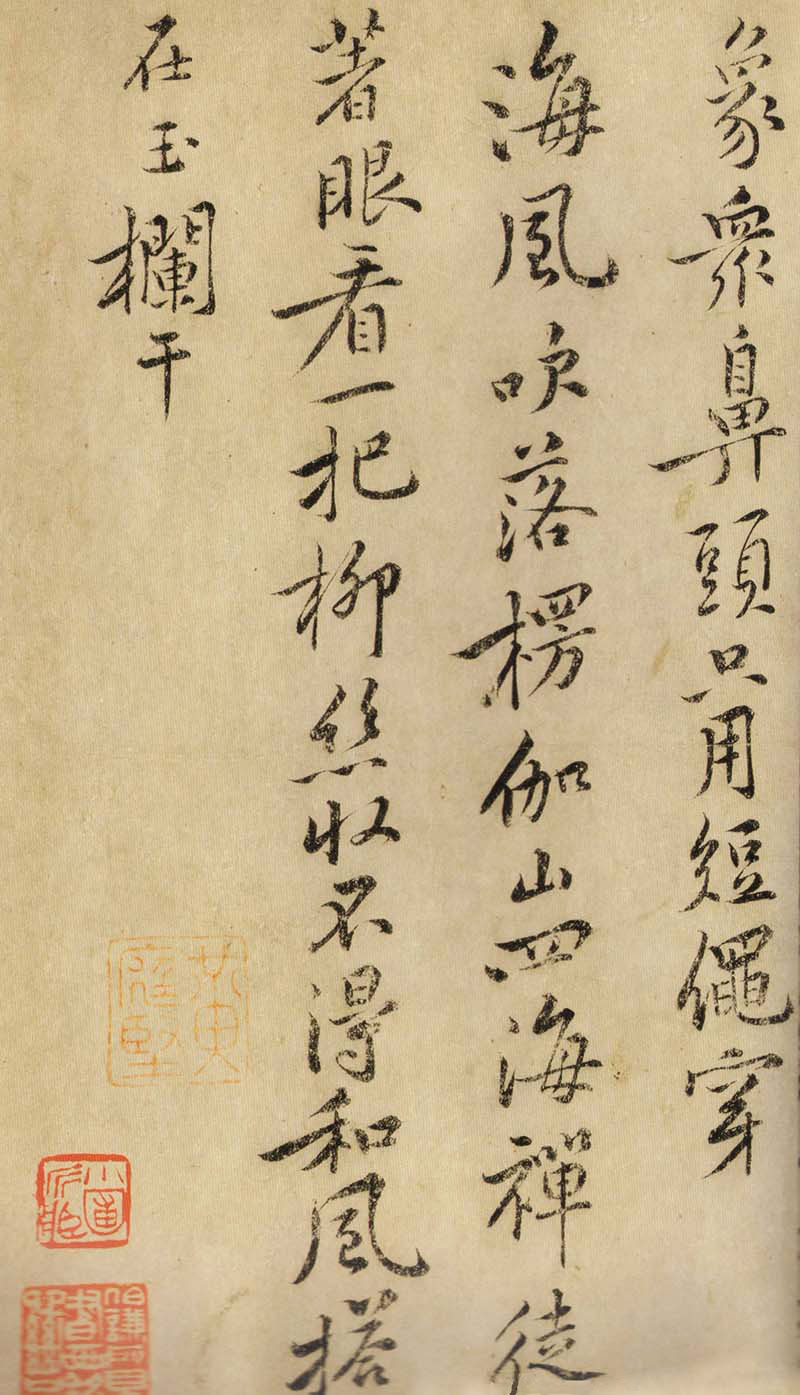 象衆鼻頭只用短繩穿
海風吹落楞伽山四海禪徒
著眼看一把柳絲收不得和風搭
在玉欄干
黃庭堅